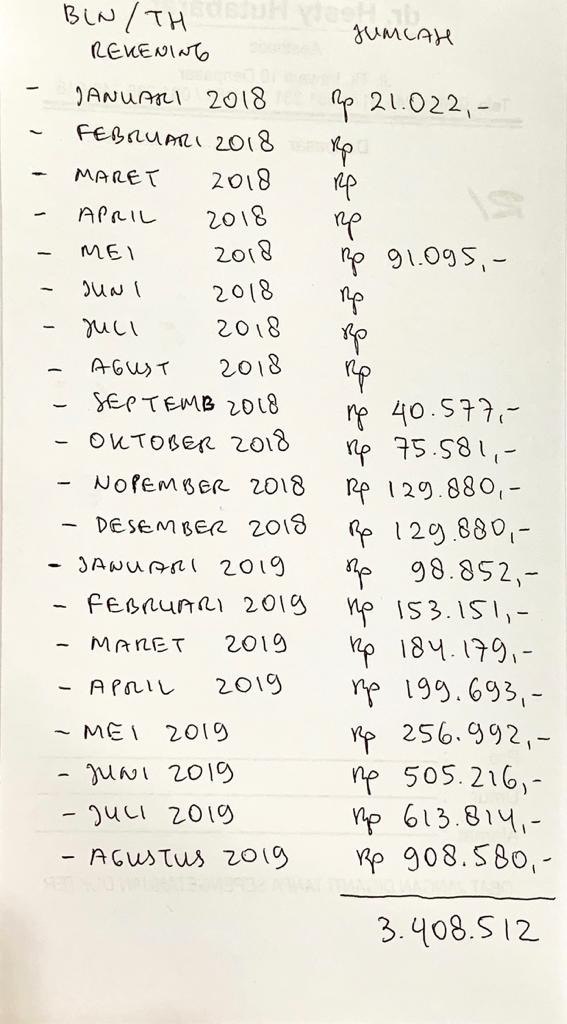 BLN / TH JUMLAH
REKENING
- JANUARI 2018 Rp 21.022,-
- FEBRUARI 2018 Rp
- MARET 2018 Rp
- APRIL 2018 Rp
- MEI 2018 Rp 91.095,-
- JUNI 2018 Rp
- JULI 2018 Rp
- AGUST 2018 Rp
- SEPTEMB 2018 Rp 40.577,-
- OKTOBER 2018 Rp 75.581,-
- NOPEMBER 2018 Rp 129.880,-
- DESEMBER 2018 Rp 129.880,-
- JANUARI 2019 Rp 98.852,-
- FEBRUARI 2019 Rp 153.151,-
- MARET 2019 Rp 184.179,-
- APRIL 2019 Rp 199.693,-
- MEI 2019 Rp 256.992,-
- JUNI 2019 Rp 505.216,-
- JULI 2019 Rp 613.814,-
- AGUSTUS 2019 Rp 908.580,-
3.408.512